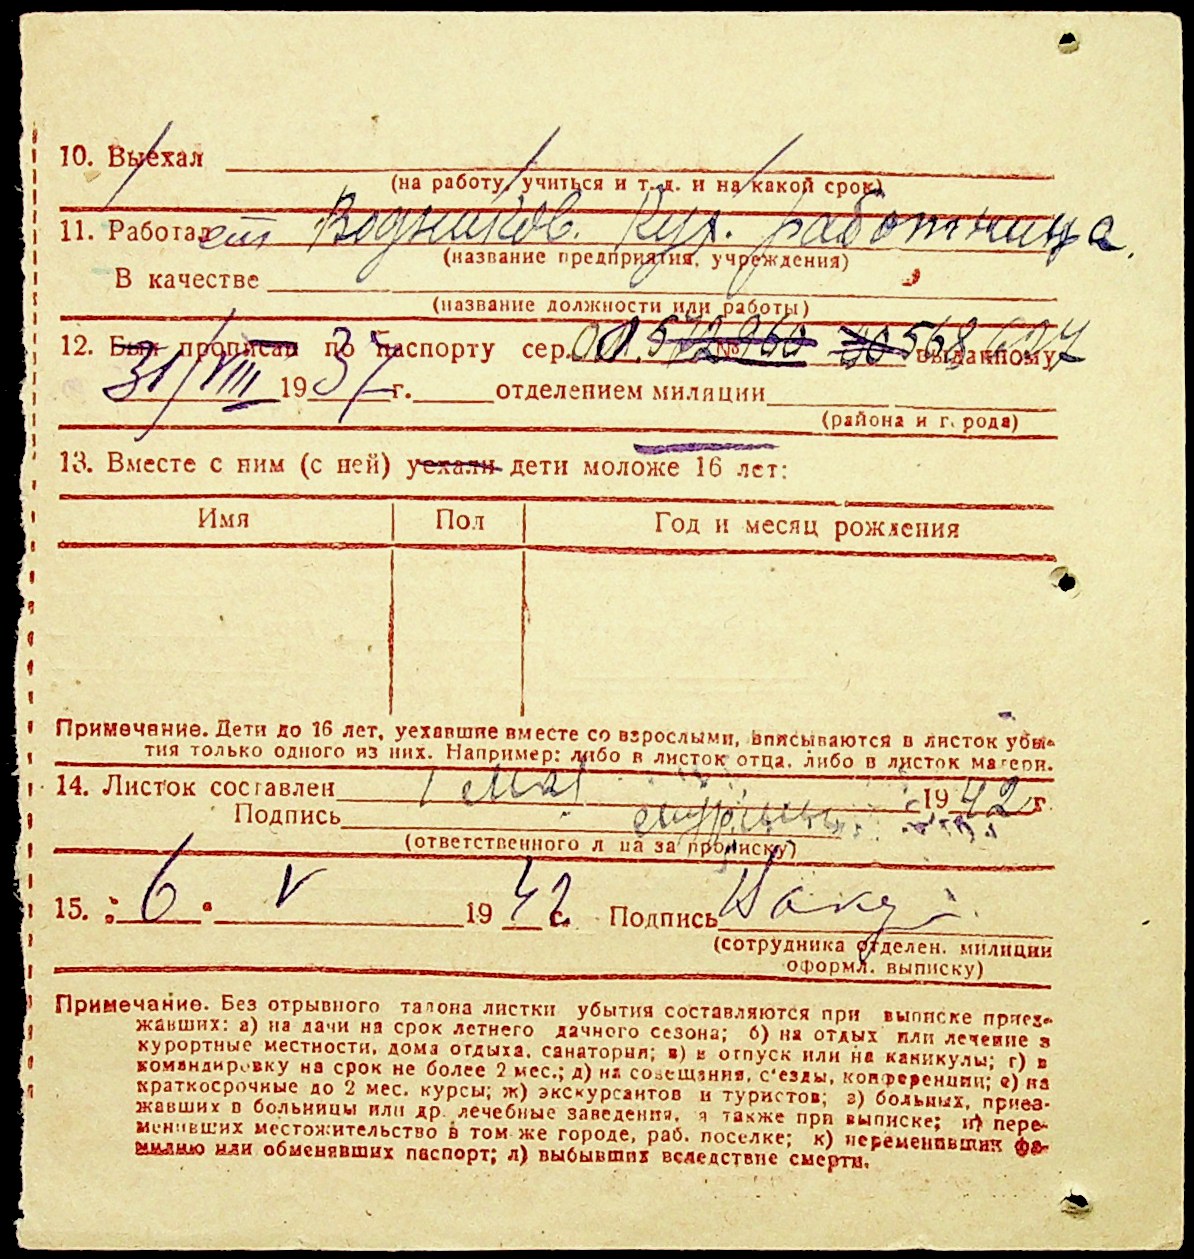 10. Выехал
(на работу, учиться и т. д. и на какой срок)
11. Работал ст Водников. Кух. работница.
(название предприятия, учреждения)
В качестве
(название должности или работы)
12. Был прописан по паспорту сер. № 568 выданному
31/VIII 1937 г. отделением милиции
(района и города)
13. Вместе с ним (с ней) уехали дети моложе 16 лет:
Имя Пол Год и месяц рождения
Примечание. Дети до 16 лет, уехавшие вместе со взрослыми, вписываются в листок убы-
тия только одного из них. Например: либо в листок отца, либо в листок матери.
14. Листок составлен 1 мая 1942 г.
Подпись
(ответственного лица за прописку)
15. „6“ V 1942 г. Подпись
(сотрудника отделен. милиции
оформл. выписку)
Примечание. Без отрывного талона листки убытия составляются при выписке приез-
жавших: а) на дачи на срок летнего дачного сезона; б) на отдых или лечение в
курортные местности, дома отдыха, санатории; в) в отпуск или на каникулы; г) в
командировку на срок не более 2 мес.; д) на совещания, с'езды, конференции; е) на
краткосрочные до 2 мес. курсы; ж) экскурсантов и туристов; з) больных, приез-
жавших в больницы или др. лечебные заведения, а также при выписке; и) пере-
менивших местожительство в том же городе, раб. поселке; к) переменивших фа-
милию или обменявших паспорт; л) выбывших вследствие смерти.